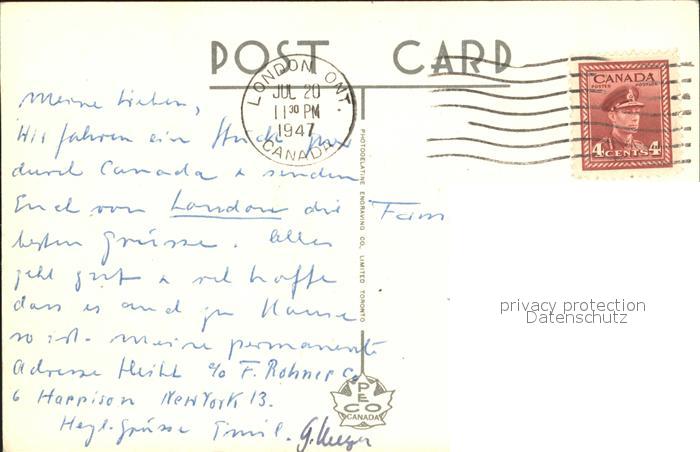 POST CARD
LONDON ONT.
JUL 20
11 30 PM
1947
CANADA
CANADA
POSTES POSTAGE
4 CENTS 4
Meine Lieben,
Wir fahren ein Stück
durch Canada + senden
Euch von London die
besten Grüsse. Alles
geht gut + ich hoffe
dass es auch zu Hause
so ist. Meine permanente
Adresse c/o F. Rohner Co
6 Harrison New York 13.
Herzl. Grüsse Emil.
Fam
PHOTOGELATINE ENGRAVING CO. LIMITED TORONTO
PECO
CANADA
privacy protection
Datenschutz